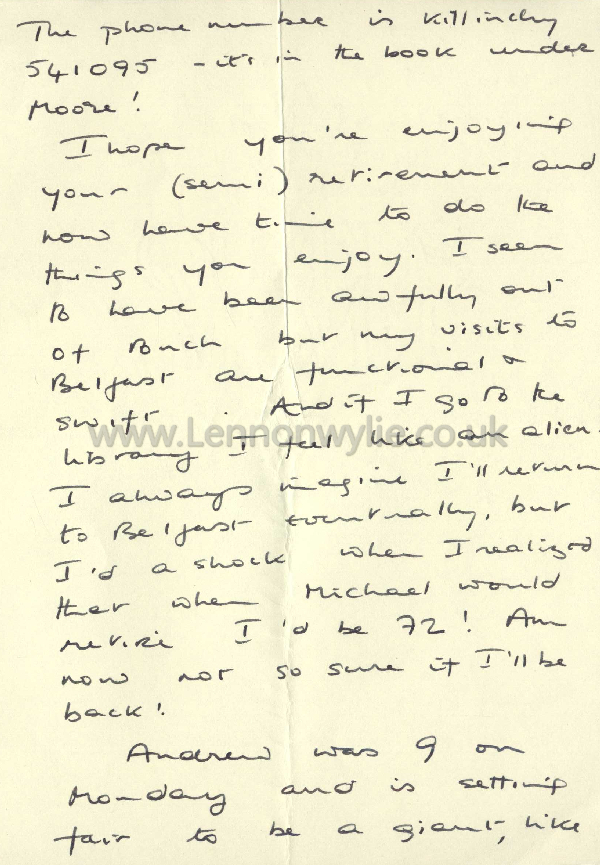 The phone number is Killinchy
541095 - it's in the book under
Moore!
I hope you're enjoying
your (semi) retirement and
now have time to do the
things you enjoy. I seem
to have been awfully out
of touch but my visits to
Belfast are functional &
swift. And if I go to the
www.Lennonwylie.co.uk
library I feel like an alien.
I always imagine I'll return
to Belfast eventually, but
I'd a shock when I realized
that when Michael would
retire I'd be 72! Am
now not so sure if I'll be
back!
Andrew was 9 on
Monday and is setting
fair to be a giant, like